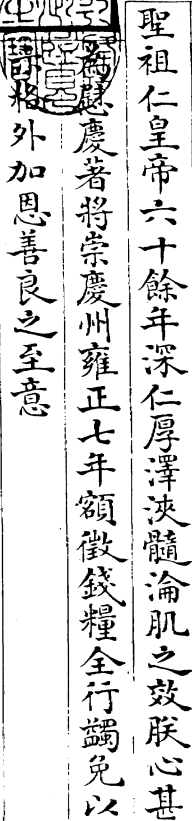 聖祖仁皇帝六十餘年深仁厚澤浹髓淪肌之效朕心甚
為慰慶著將崇慶州雍正七年額徵錢糧全行蠲免以
格外加恩善良之至意